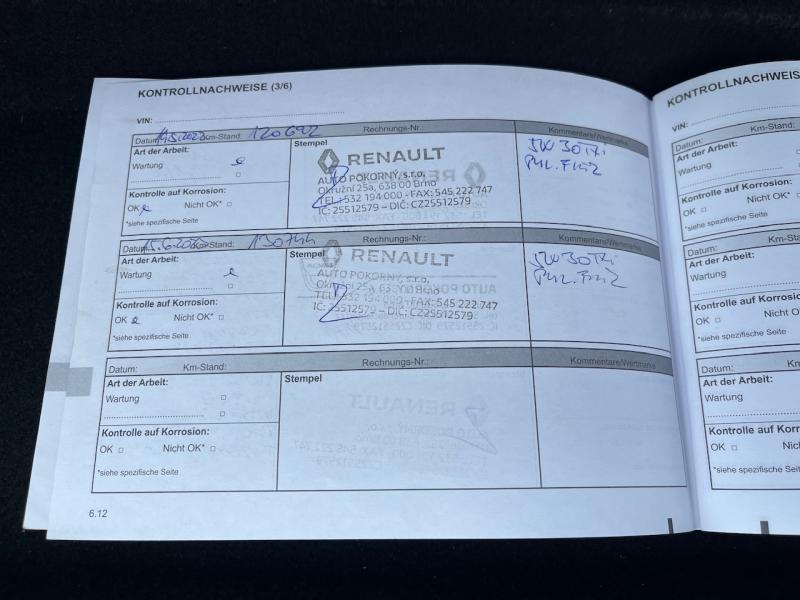 KONTROLLNACHWEISE (3/6)
VIN:
Datum: Km-Stand: 120692 Rechnungs-Nr.: Kommentare/Wertmarke
Art der Arbeit:
Wartung
Stempel
RENAULT
AUTO POKORNÝ, s.r.o.
Okružní 25a, 638 00 Brno
TEL.: 532 194 000 - FAX: 545 222 747
IČ: 25512579 – DIČ: CZ25512579
5W30
Kontrolle auf Korrosion:
OK Nicht OK*
*siehe spezifische Seite
Datum: Km-Stand: 130744 Rechnungs-Nr.: Kommentare/Wertmarke
Art der Arbeit:
Wartung
Stempel
RENAULT
AUTO POKORNÝ, s.r.o.
Okružní 25a, 638 00 Brno
TEL.: 532 194 000 - FAX: 545 222 747
IČ: 25512579 – DIČ: CZ25512579
5W30
Kontrolle auf Korrosion:
OK Nicht OK*
*siehe spezifische Seite
Datum: Km-Stand: Rechnungs-Nr.: Kommentare/Wertmarke
Art der Arbeit:
Wartung
Stempel
Kontrolle auf Korrosion:
OK Nicht OK*
*siehe spezifische Seite
6.12
KONTROLLNACHWEISE
VIN:
Datum: Km-Stand:
Art der Arbeit:
Wartung
Kontrolle auf Korrosion:
OK Nicht OK*
*siehe spezifische Seite
Datum: Km-Sta
Art der Arbeit:
Wartung
Kontrolle auf Korrosio
OK Nicht O
*siehe spezifische Seite
Datum: Km-S
Art der Arbeit:
Wartung
Kontrolle auf Korros
OK Nich
*siehe spezifische Seit